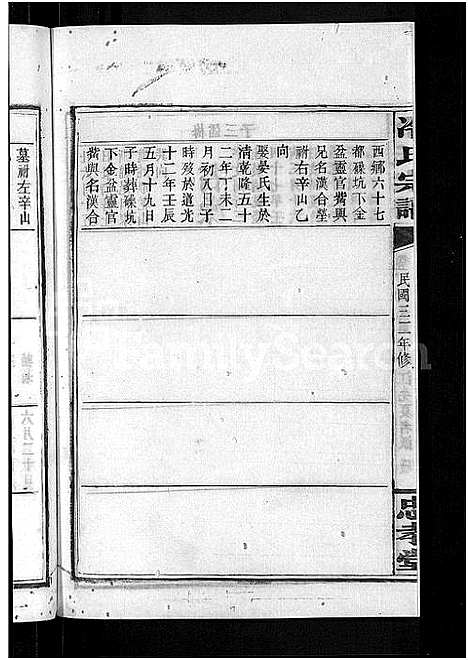 西鄉六十七
都磜坑下金
盆靈官觜與
兄名漢合塋
祔右辛山乙
向
娶晏氏生於
清乾隆五十
二年丁未二
月初八日子
時歿於道光
十二年壬辰
五月十九日
子時葬磜坑
下金盆靈官
觜與名漢合
墓祔左辛山
氏宗譜
民國三二年修
忠孝堂
FamilySearch